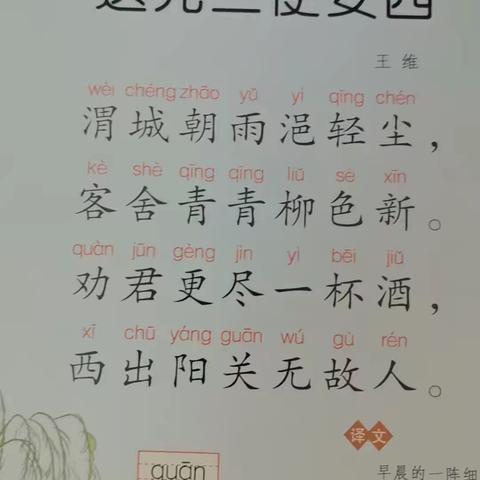 送元二使安西
王维
wèi chéng zhāo yǔ yì qīng chén
渭城朝雨浥轻尘，
kè shè qīng qīng liǔ sè xīn
客舍青青柳色新。
quàn jūn gèng jìn yì bēi jiǔ
劝君更尽一杯酒，
xī chū yáng guān wú gù rén
西出阳关无故人。
译文
quān
早晨的一阵细